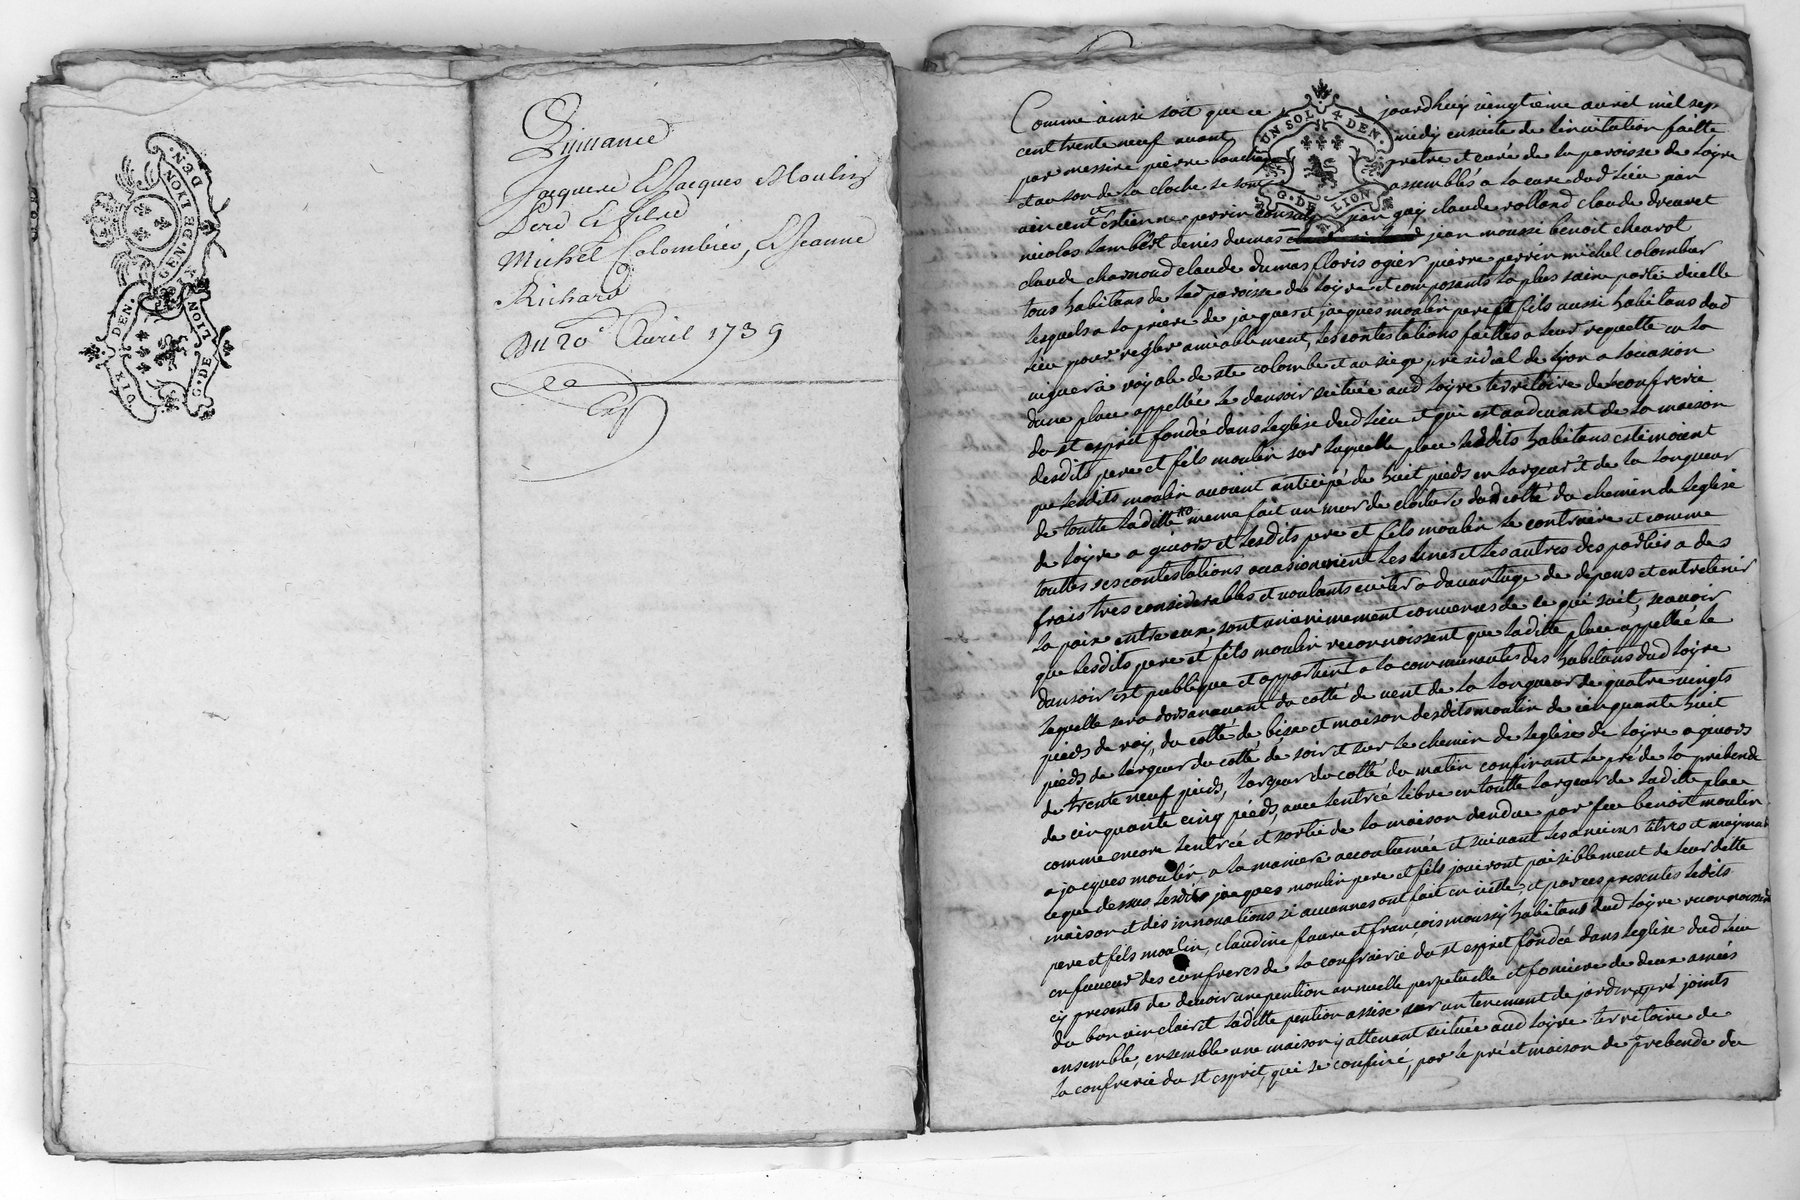 DEN.
G. DE LION
GEN. DE LION
DIX DEN.
Quittance
Jacques & Jacques Moulin
Pere & fils
Michel Colombier, & Jeanne
Richard
Du 20e Avril 1739
UN SOL 4 DEN.
G. DE LION
Comme ainsi soit que ce jourdhuy vingtieme avril mil sep
cent trente neuf avant midy ensuite de linvitation faitte
par messire pierre pretre et curé de la paroisse de loyre
et au son de la cloche se sont assemblés a la cure dud lieu par
vincent estienne perrin consuls jean gay claude rolland claude drevet
nicolas lambert denis dumas jean moussi benoit chearot
claude charnoud claude dumas floris ogier pierre perrin michel colombier
tous habitans de lad paroisse de loyre et composants la plus saine partie dicelle
lesquels a la priere de jacques et jacques moulin pere et fils aussi habitans dud
lieu pour regler amiablement, les contestations faittes a leur requette en la
viguerie royale de ste colombe et au siege presidial de lyon a loccasion
dune place appellée le dansoir scituée aud loyre territoire de confrerie
du st esprit fondée dans leglise dud lieu et qui est audevant de la maison
desdits pere et fils moulin sur laquelle place lesdits habitans estimoient
que lesdits moulin avoient anticipé de huit pieds en largeur et de la longueur
de toutte laditte meme fait un mur de cloture dud cotté du chemin de leglise
de loyre a givors et lesdits pere et fils moulin le contraire et comme
touttes ses contestations occasionnoient les unes et les autres des parties a des
frais tres considerables et voulants eviter a davantage de depens et entretenir
la paix entre eux, sont unanimement convenus de ce qui suit, scavoir
que lesdits pere et fils moulin reconnoissent que laditte place appellée le
dansoir est publique et appartient a la communauté des habitans dud loyre
laquelle sera dorsanavant du cotté de vent de la longueur de quatre vingts
pieds de roy, du cotté de bise et maison desdits moulin de cinquante huit
pieds de largeur du cotté de soir et sur le chemin de leglise de loyre a givors
de trente neuf pieds, largeur du cotté du matin confinant le pré de la prebende
de cinquante cinq pieds, avec lentrée libre en toutte largeur de laditte place
comme encore lentrée et sortie de la maison vendue par feu benoit moulin
a jacques moulin, a la maniere accoutumée et suivant les anciens titres et moyennant
ceque dessus lesdits jacques moulin pere et fils jouiront paisiblement de leur ditte
maison et des innovations si aucunnes ont fait en icelle, et par ces presentes lesdits
pere et fils moulin, claudine faure et francois moussy habitans dud loyre reconnoissent
en faveur des confreres de la confrairie du st esprit fondée dans leglise dud lieu
cy presents de devoir une pention annuelle perpetuelle et fonciere de deux asnées
du bon vin clairet laditte pention assise sur un tenement de jardin pré joints
ensemble, ensemble une maison y attenant scituée aud loyre territoire de
la confrerie du st esprit, qui se confine, par le pré et maison de prebende du